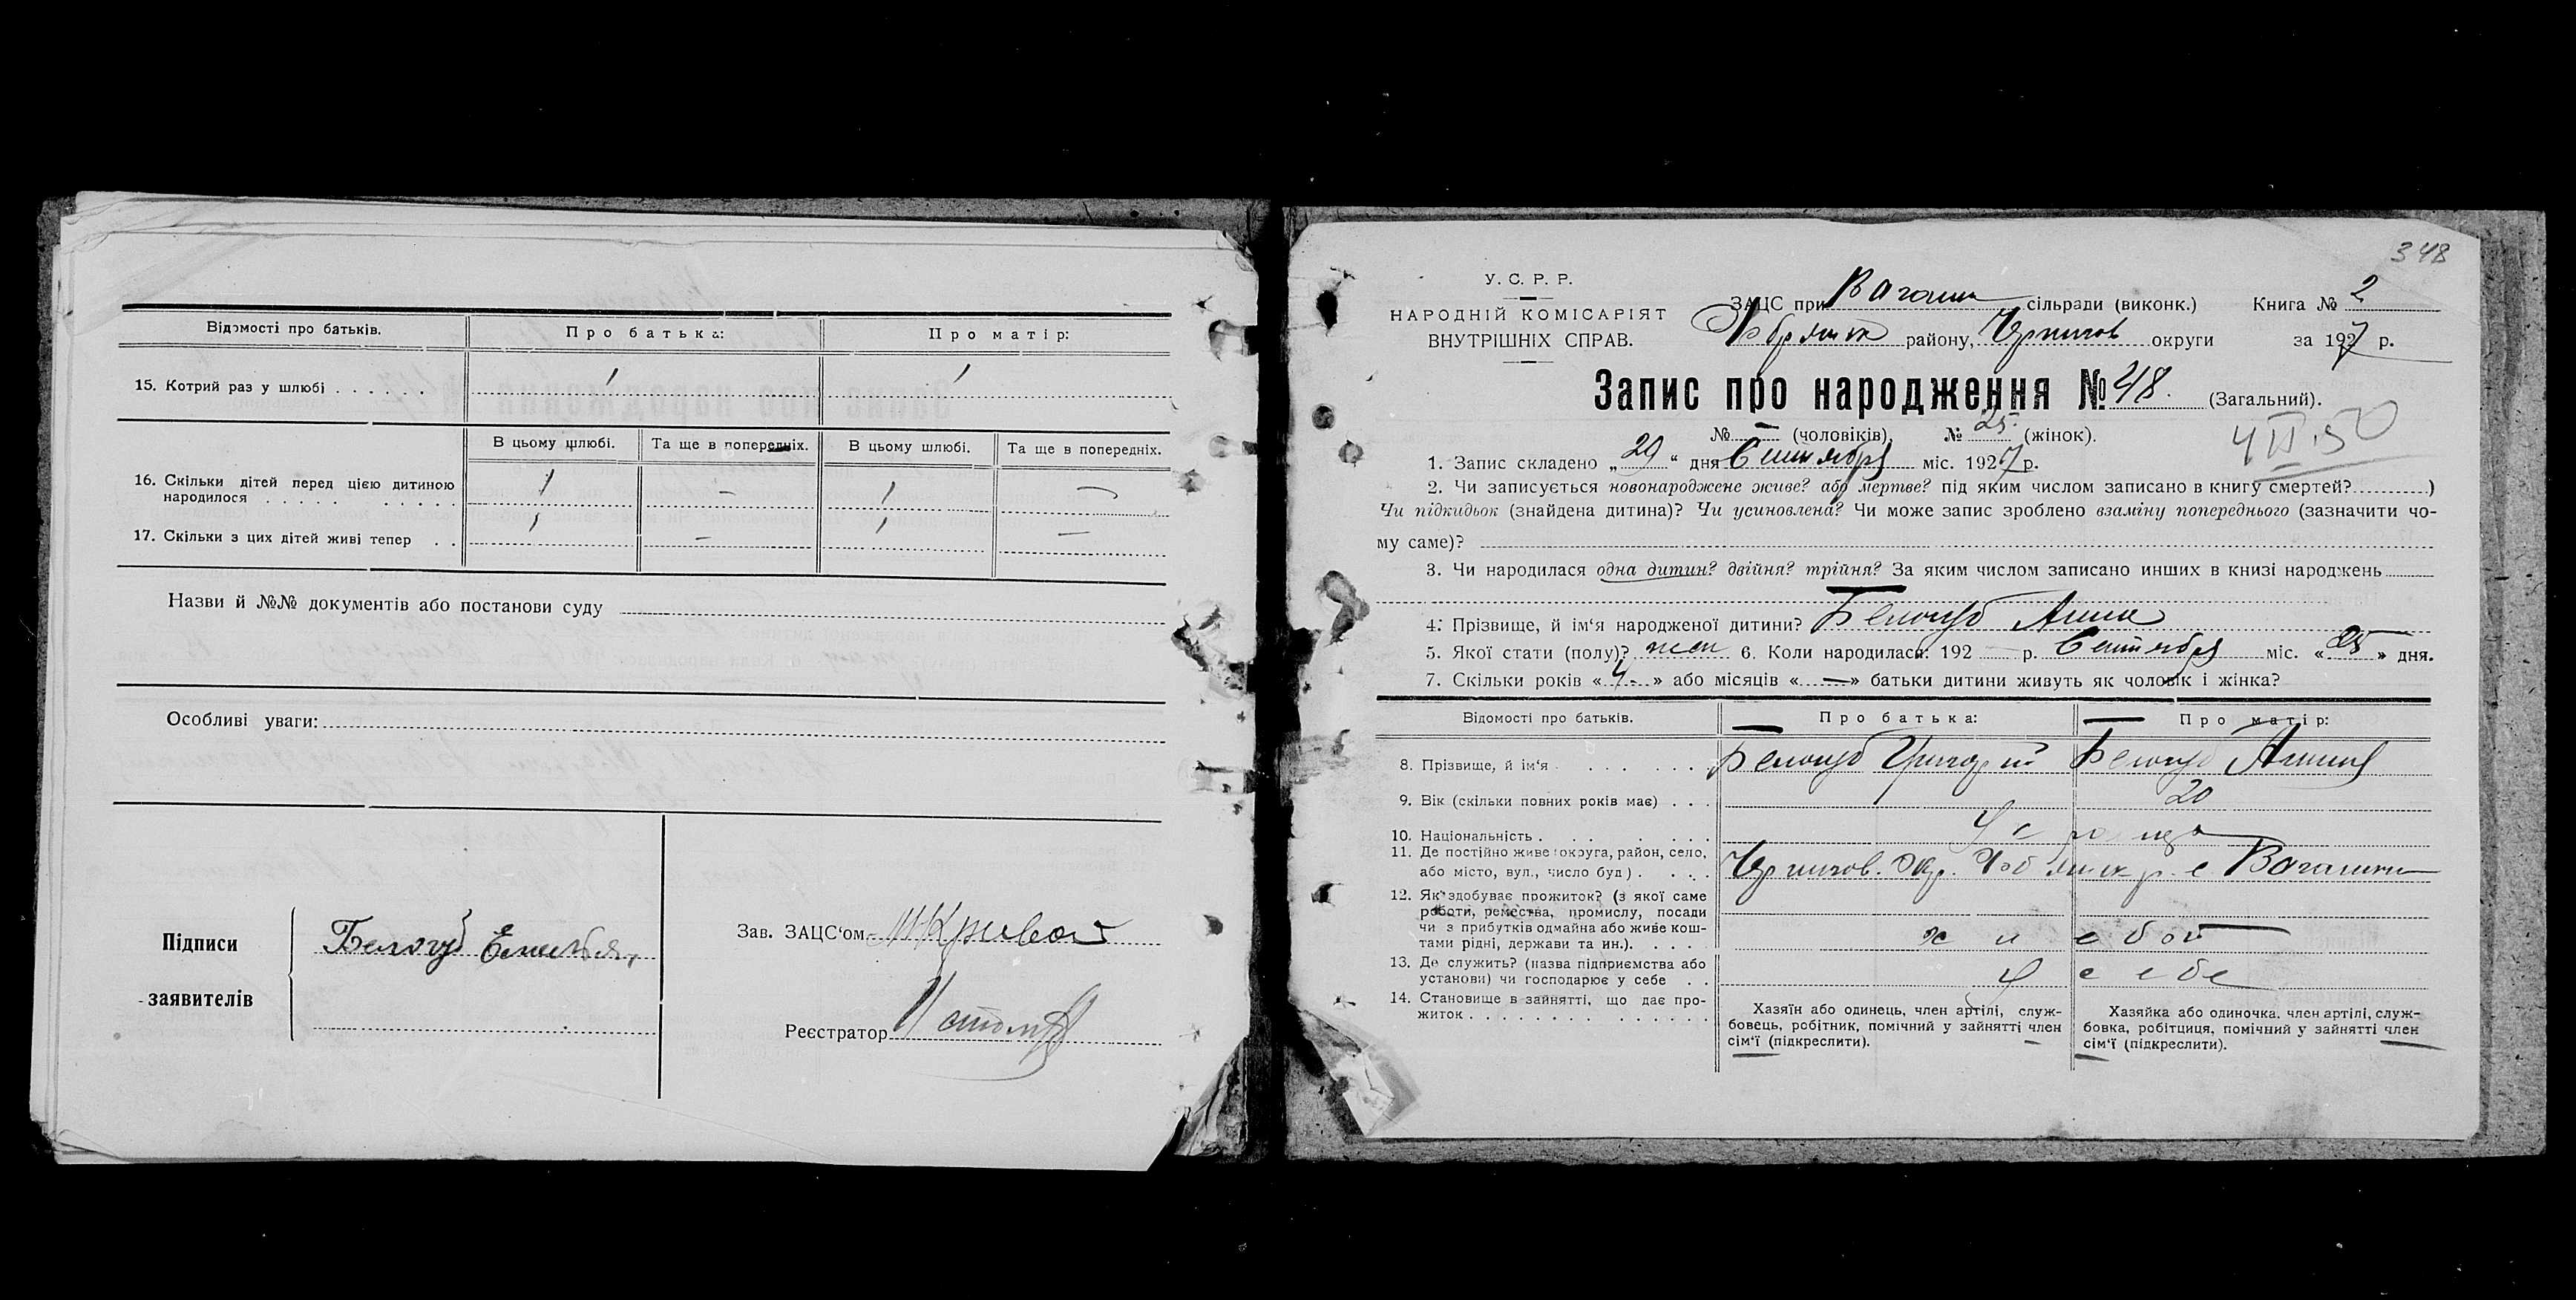 Відомості про батьків. Про батька: Про матір:
15. Котрий раз у шлюбі . . . . . . 1 1
В цьому шлюбі. Та ще в попередніх. В цьому шлюбі. Та ще в попередніх.
16. Скільки дітей перед цією дитиною
народилося . . . . . . . . . . 1 — 1 —
17. Скільки з цих дітей живі тепер . . 1 — 1 —
Назви й №№ документів або постанови суду
Особливі уваги:
Підписи
заявителів
Белоуб
Зав. ЗАЦС‘ом
Реєстратор
348
У. С. Р. Р.
НАРОДНІЙ КОМІСАРІЯТ
ВНУТРІШНІХ СПРАВ.
ЗАЦС при Вагани сільради (виконк.) Книга № 2
району, Чернигов округи за 1927 р.
Запис про народження № 48. (Загальний).
№ — (чоловіків). № 25. (жінок).
4 II 50
1. Запис складено „29“ дня Сентября міс. 1927 р.
2. Чи записується новонароджене живе? або мертве? під яким числом записано в книгу смертей?)
Чи підкидьок (знайдена дитина)? Чи усиновлена? Чи може запис зроблено взаміну попереднього (зазначити чо-
му саме)?
3. Чи народилася одна дитин? двійня? трійня? За яким числом записано инших в книзі народжень
4. Прізвище, й ім‘я народженої дитини? Белоуб Анна
5. Якої стати (полу)? жен 6. Коли народилася: 192 р. Сентября міс. «25» дня.
7. Скільки років «4» або місяців «—» батьки дитини живуть як чоловік і жінка?
Відомості про батьків. Про батька: Про матір:
8. Прізвище, й ім‘я . . . . . . Белоуб Григорий Белоуб
9. Вік (скільки повних років має) . . . 20
10. Національність . . . . . .
11. Де постійно живе: округа, район, село,
або місто, вул., число буд) . . . . Чернигов. Окр. р. с Вагани
12. Як здобуває прожиток? (з якої саме
роботи, ремества, промислу, посади
чи з прибутків одмайна або живе кош-
тами рідні, держави та ин.). . . . . хлебоб
13. Де служить? (назва підприємства або
установи) чи господарює у себе . . У себе
14. Становище в зайнятті, що дає про-
житок . . . . . . . . . . . .
Хазяїн або одинець, член артілі, служ-
бовець, робітник, помічний у зайнятті член
сім‘ї (підкреслити).
Хазяйка або одиночка, член артілі, служ-
бовка, робітциця, помічний у зайнятті член
сім‘ї (підкреслити).